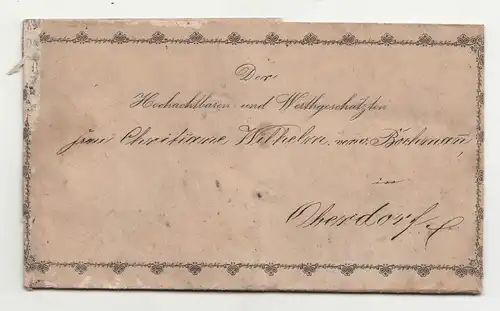 Der
Hochachtbaren und Werthgeschätzten
Frau Christiane Wilhelm. verw. Böhmann,
in
Oberdorf.